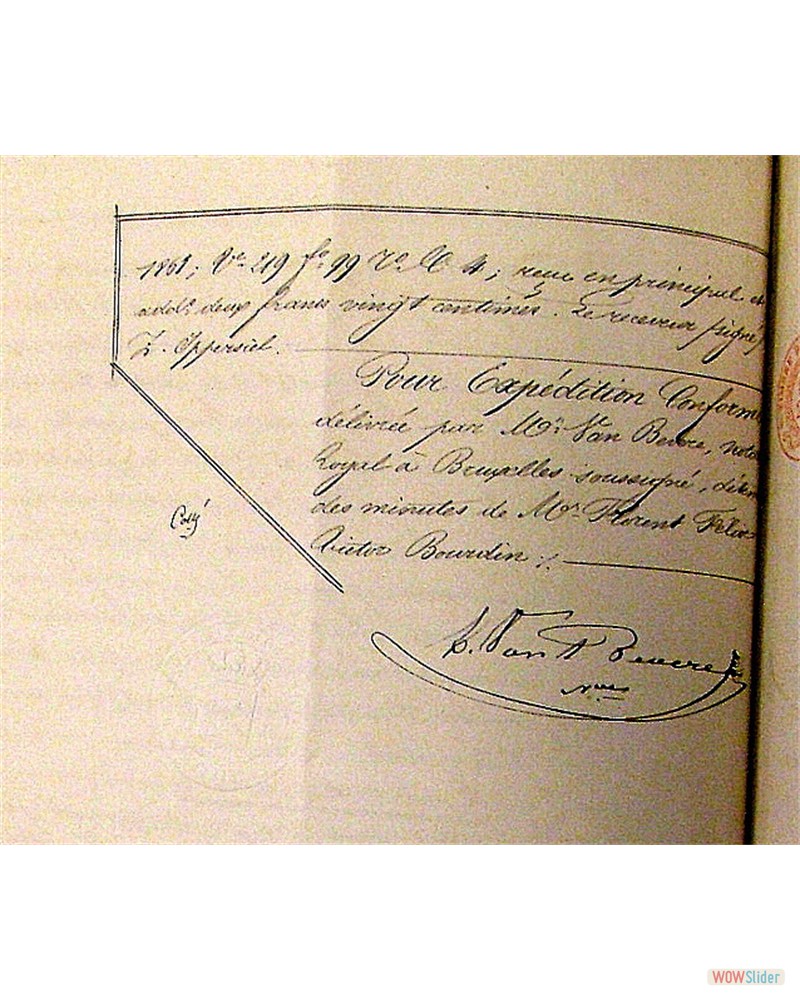 1861; Vol. 219 fo. 99 Ro. C. 4; reçu en principal et
addol. deux francs vingt centimes. Le receveur (signé)
Z. Oppersiel.
Pour Expédition Conforme
délivrée par Mr. Van Bevere, nota
Royal à Bruxelles soussigné, déten
des minutes de Mr. Florent Félix
Victor Bourdin ./.
Coll.
Van Bevere
Nre
WOWSlider